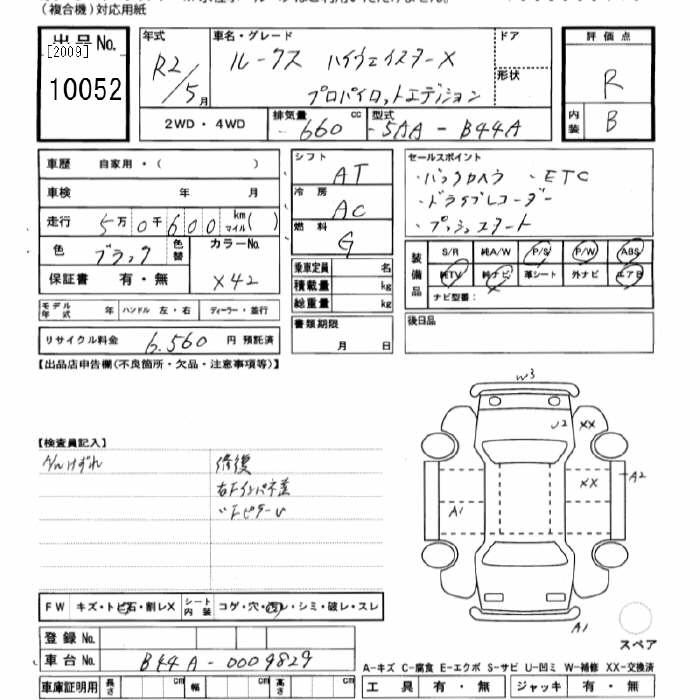 (複合機)対応用紙
出品No.
[2009]
10052
年式
R2/5月
車名・グレード
ルークス ハイウェイスターX
プロパイロットエディション
ドア
形状
評価点
R
内装
B
2WD・4WD
排気量 660 cc
型式 5AA-B44A
車歴 自家用・( )
車検 年 月
走行 5万0千600 km マイル( )
色 ブラック
色替
カラーNo. X42
保証書 有・無
モデル年式 年 ハンドル 左・右 ディーラー・並行
リサイクル料金 6,560 円 預託済
シフト AT
冷房 AC
燃料 G
乗車定員 名
積載量 kg
総重量 kg
書類期限
月 日
セールスポイント
・バックカメラ ・ETC
・ドラブレコーダー
・プッシュスタート
装備品
S/R 純A/W P/S P/W ABS
純TV 純ナビ 革シート 外ナビ エアB
ナビ型番:
後日品
【出品店申告欄(不良箇所・欠品・注意事項等)】
【検査員記入】
修復
右Fインパネ差
〃Fピラーレ
W3
U2 XX
XX
A2
A1
A1
スペア
FW キズ・トビ石・割レX シート内装 コゲ・穴・汚レ・シミ・破レ・スレ
登録No.
車台No. B44A-0009829
車庫証明用 長さ cm 幅 cm 高さ cm
A-キズ C-腐食 E-エクボ S-サビ U-凹ミ W-補修 XX-交換済
工具 有・無 ジャッキ 有・無